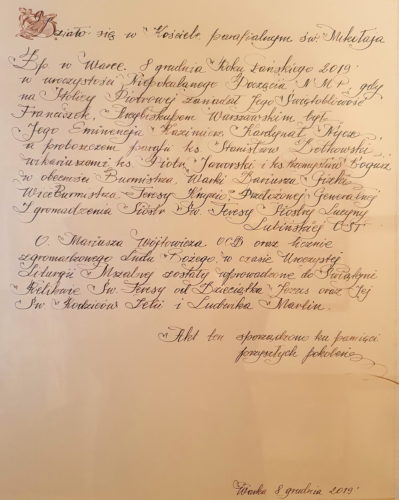 Działo się w Kościele parafialnym św. Mikołaja
Bp. w Warce. 8 grudnia Roku Pańskiego 2019
w uroczystość Niepokalanego Poczęcia N.M.P. gdy
na Stolicy Piotrowej zasiadał Jego Świątobliwość
Franciszek, Arcybiskupem Warszawskim był
Jego Eminencja Kazimierz Kardynał Nycz
a proboszczem parafii ks. Stanisław
wikariuszami ks. Piotr Jaworski i ks. Przemysław
w obecności Burmistrza Warki Dariusza Gizki
WiceBurmistrz Teresy Knyzio, Przełożonej Generalnej
Zgromadzenia Sióstr Św. Teresy Siostry Lucyny
Lubińskiej CST
O. Mariusza Wójtowicza OCD oraz licznie
zgromadzonego Ludu Bożego, w czasie Uroczystej
Liturgii Mszalnej zostały wprowadzone do Świątyni
Relikwie Św. Teresy od Dzieciątka Jezus oraz Jej
Św. Rodziców Zelii i Ludwika Martin.
Akt ten sporządzono ku pamięci
przyszłych pokoleń
Warka 8 grudnia 2019